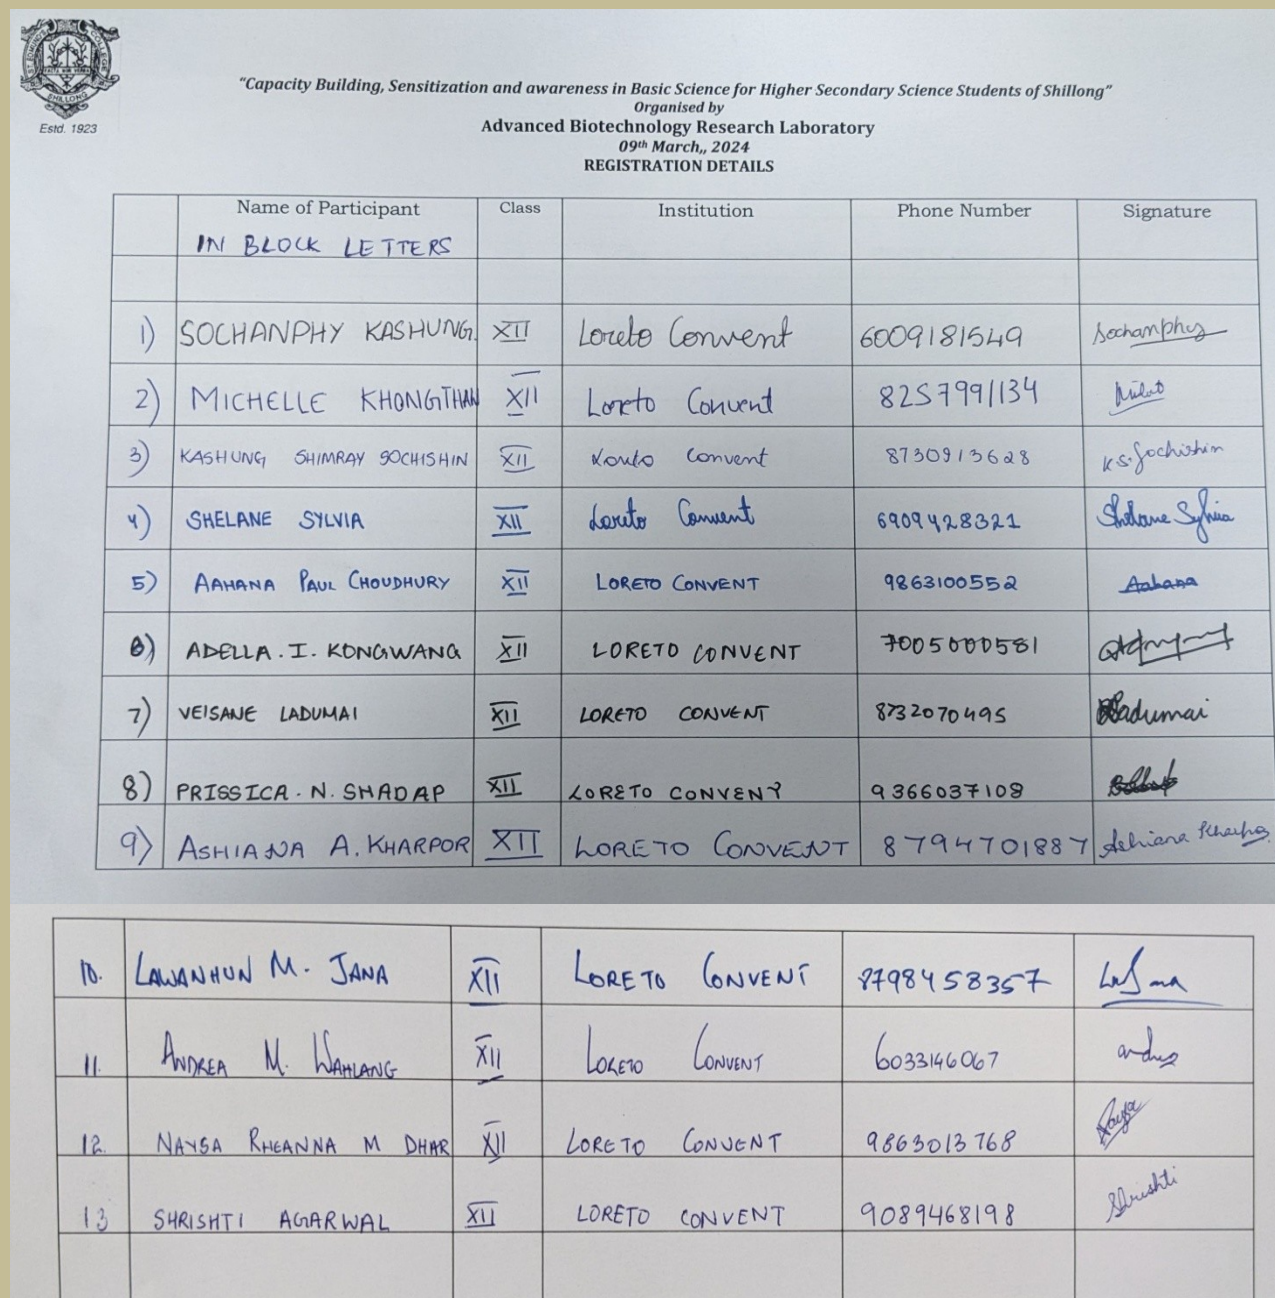 ST. EDMUND'S COLLEGE
SHILLONG
Estd. 1923
"Capacity Building, Sensitization and awareness in Basic Science for Higher Secondary Science Students of Shillong"
Organised by
Advanced Biotechnology Research Laboratory
09th March,, 2024
REGISTRATION DETAILS
Name of Participant Class Institution Phone Number Signature
IN BLOCK LETTERS
1) SOCHANPHY KASHUNG XII Loreto Convent 6009181549 Sochanphy
2) MICHELLE KHONGTHAN XII Loreto Convent 8257991134
3) KASHUNG SHIMRAY SOCHISHIN XII Loreto Convent 8730913628 K.S.Sochishin
4) SHELANE SYLVIA XII Loreto Convent 6909428321 Shelane Sylvia
5) AAHANA PAUL CHOUDHURY XII LORETO CONVENT 9863100552 Aahana
6) ADELLA. I. KONGWANG XII LORETO CONVENT 7005000581
7) VEISANE LADUMAI XII LORETO CONVENT 8732070495 Ladumai
8) PRISSICA. N. SHADAP XII LORETO CONVENT 9366037108
9) ASHIANA A. KHARPOR XII LORETO CONVENT 8794701887 Ashiana Kharpor
10. LAWANHUN M. JANA XII LORETO CONVENT 8798458357
11. ANDREA M. WAHLANG XII LORETO CONVENT 6033146067
12. NAYSA RHEANNA M DHAR XII LORETO CONVENT 9863013768 Naysa
13 SHRISHTI AGARWAL XII LORETO CONVENT 9089468198 Shrishti